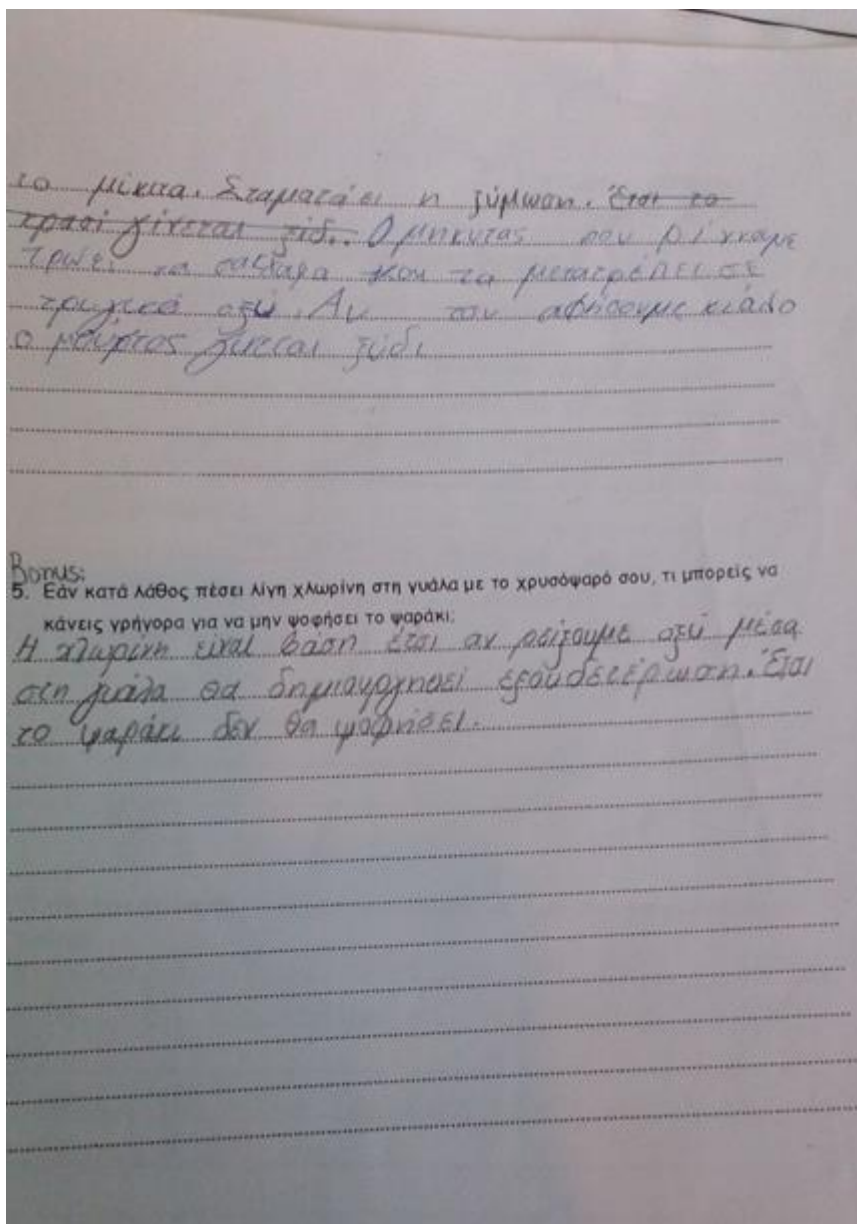 το μίκιτα. Σταματάει η ζύμωση. Έτσι το
κρασί γίνεται ξίδ.. Ο μηκυτας που ρίχναμε
τρώει τα σάκχαρα και τα μετατρέπει σε
τρυγικό οξύ. Αν τον αφήσουμε κιάλο
ο μούστος γίνεται ξύδι
Bonus:
5. Εάν κατά λάθος πέσει λίγη χλωρίνη στη γυάλα με το χρυσόψαρό σου, τι μπορείς να
κάνεις γρήγορα για να μην ψοφήσει το ψαράκι;
Η χλωρίνη είναι βάση έτσι αν ρείξουμε οξύ μέσα
στη γυάλα θα δημιουργηθεί εξουδετέρωση. Έτσι
το ψαράκι δεν θα ψοφήσει.